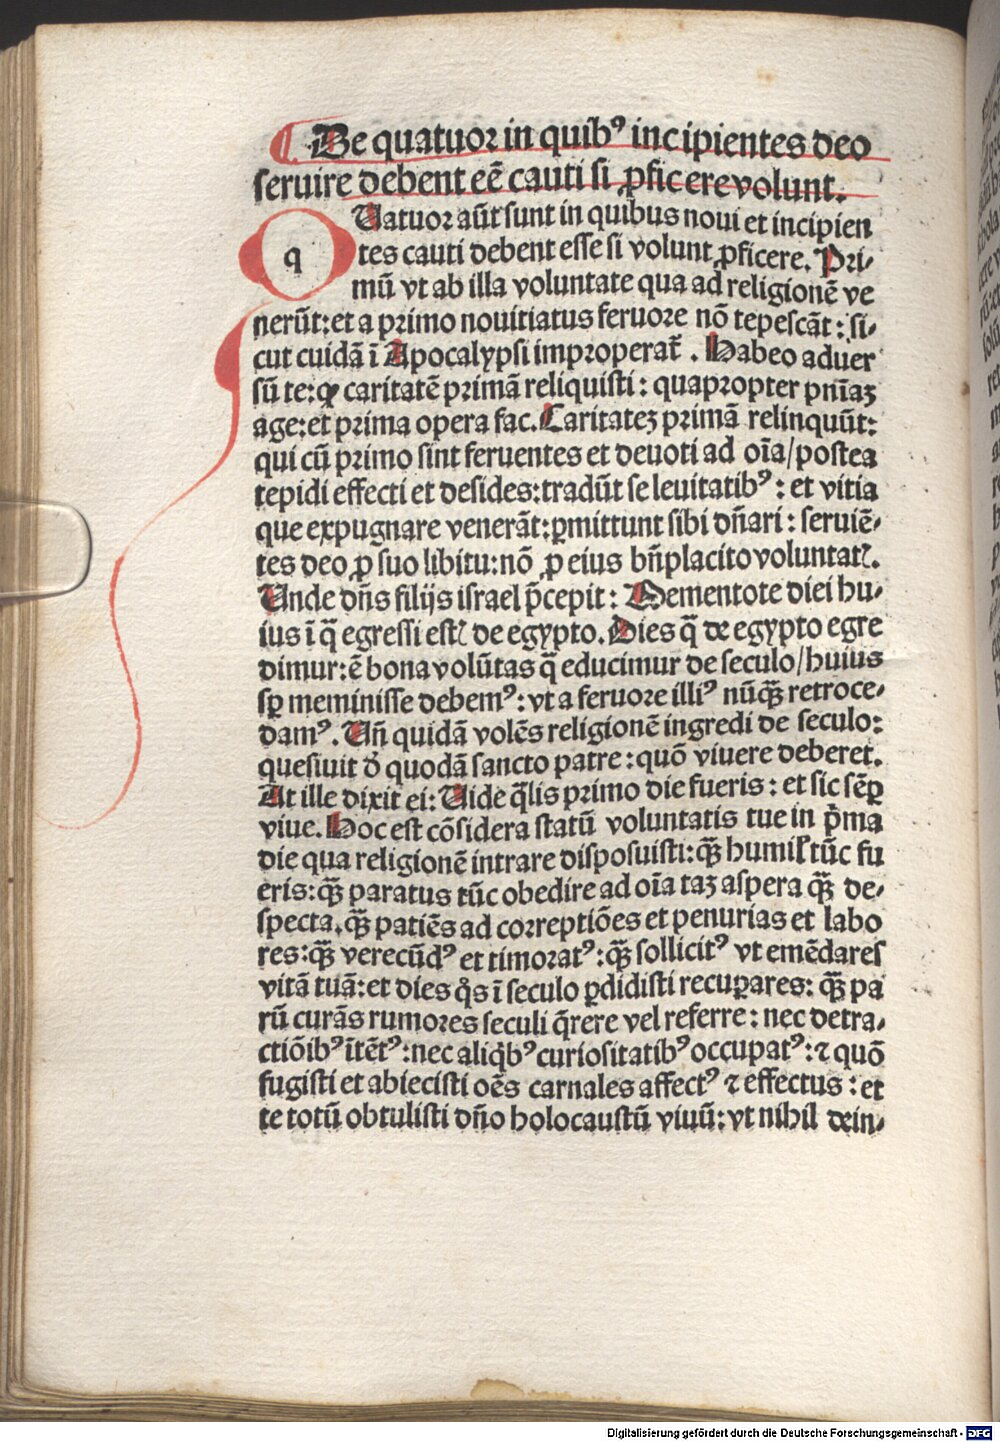 ¶ De quatuor in quibꝰ incipientes deo
seruire debent eē cauti si ꝓficere volunt.
qUatuor aūt sunt in quibus noui et incipien
tes cauti debent esse si volunt ꝓficere. Pri⸗
mū vt ab illa voluntate qua ad religionē ve
nerūt: et a primo nouitiatus feruore nō tepescāt: si⸗
cut cuidā ī Apocalypsi improperat̄. Habeo aduer
sū te: qꝫ caritatē primā reliquisti: quapropter pnīaꝫ
age: et prima opera fac. Caritateꝫ primā relinquūt:
qui cū primo sint feruentes et deuoti ad oīa/postea
tepidi effecti et desides: tradūt se leuitatibꝰ: et vitia
que expugnare venerāt: ꝑmittunt sibi dn̄ari: seruiē⸗
tes deo ꝓ suo libitu: nō ꝓ eius bn̄placito voluntatꝭ.
Unde dn̄s filijs israel p̄cepit: Mementote diei hu⸗
ius ī q̄ egressi estꝭ de egypto. Dies q̄ de egypto egre
dimur: ē bona volūtas q̄ educimur de seculo/huius
sꝑ meminisse debemꝰ: vt a feruore illiꝰ nūqꝫ̄ retroce⸗
damꝰ. Un̄ quidā volēs religionē ingredi de seculo:
quesiuit d̄ quodā sancto patre: quō viuere deberet.
At ille dixit ei: Uide q̄lis primo die fueris: et sic sēꝑ
viue. Hoc est cōsidera statū voluntatis tue in p̄ma
die qua religionē intrare disposuisti: qꝫ̄ humilꝭ tūc fu
eris: qꝫ̄ paratus tūc obedire ad oīa taꝫ aspera qꝫ̄ de⸗
specta, qꝫ̄ patiēs ad correptiōes et penurias et labo
res: qꝫ̄ verecūdꝰ et timoratꝰ: qꝫ̄ sollicitꝰ vt emēdares
vitā tuā: et dies q̊s ī seculo ꝑdidisti recuꝑares: qꝫ̄ pa
rū curās rumores seculi q̄rere vel referre: nec detra⸗
ctiōibꝰ ītētꝰ: nec aliq̇bꝰ curiositatibꝰ occupatꝰ: ⁊ quō
fugisti et abiecisti oēs carnales affectꝰ ⁊ effectus: et
te totū obtulisti dn̄o holocaustū viuū: vt nihil dein⸗
Digitalisierung gefördert durch die Deutsche Forschungsgemeinschaft - DFG